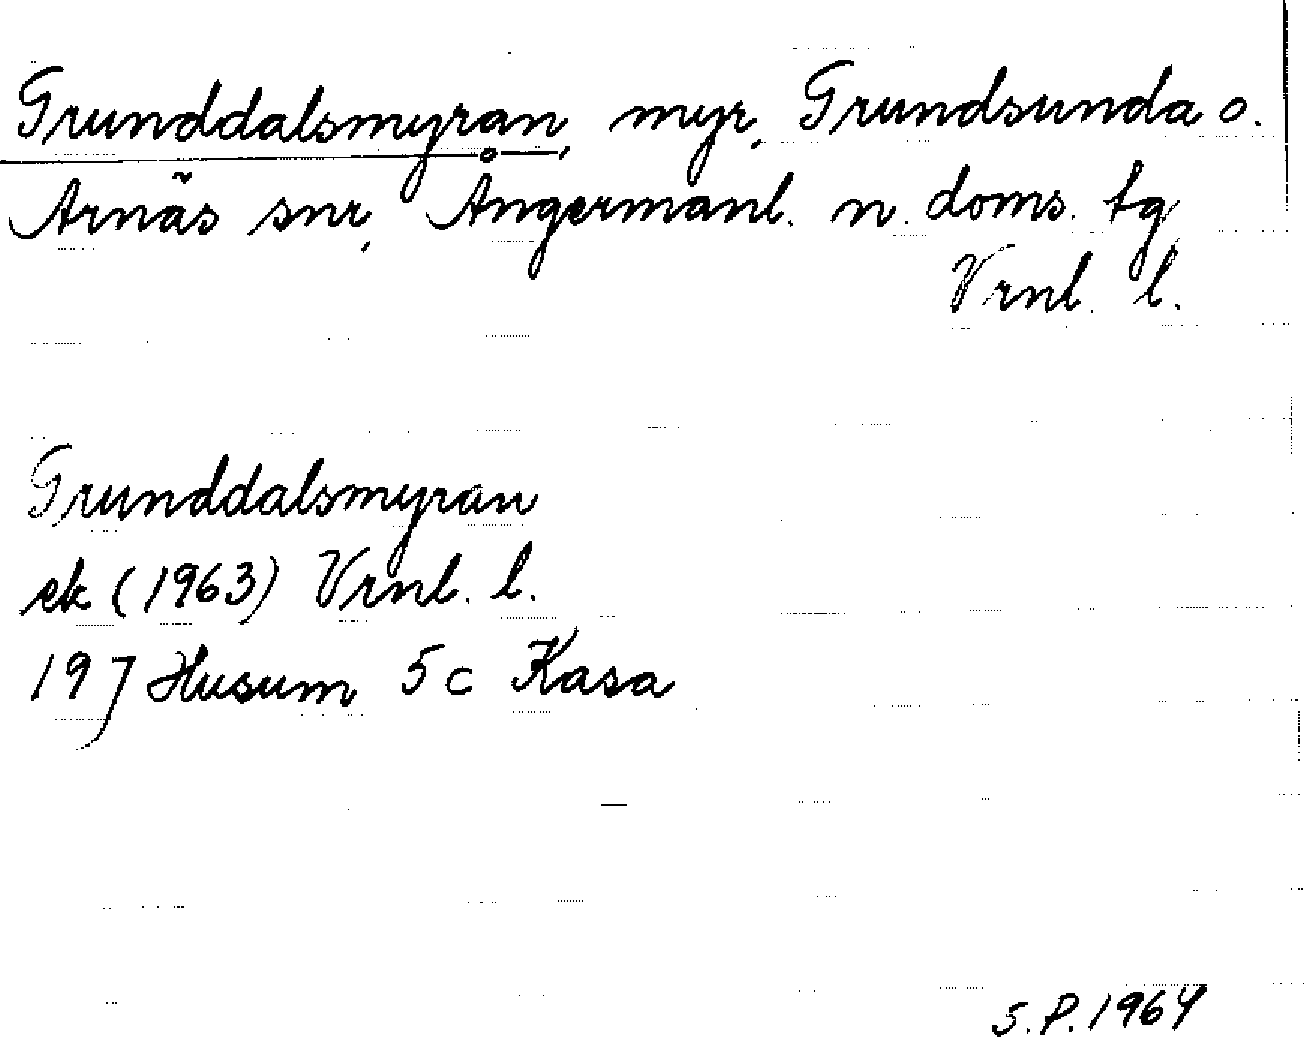 Grunddalsmyran, myr, Grundsunda o.
Arnäs snr, Ångermanl. n. doms. tg
Vrnl. l.
Grunddalsmyran
ek (1963) Vrnl. l.
19J Husum 5c Kasa
S.P. 1964